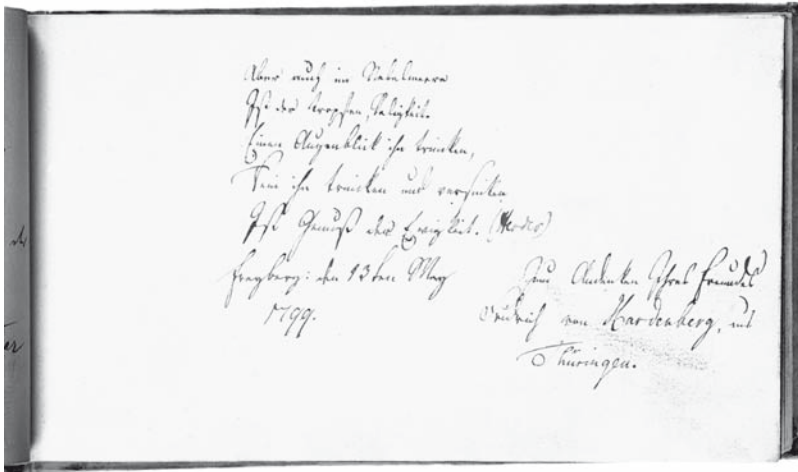 Aber auch im Nebelmeere
Ist der Tropfen, Seligkeit.
Einen Augenblick ihn trinken,
Rein ihn trinken und versinken
Ist Genuß der Ewigkeit. (Herder)
Freyberg: den 13ten May
1799.
Zum Andenken Ihres Freundes
Friedrich von Hardenberg, aus
Thüringen.